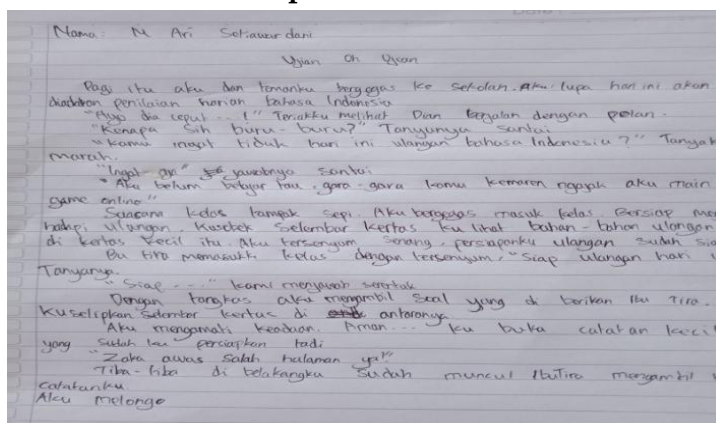 Nama: M Ari Setiawardani
Ujian Oh Ujian
Pagi itu aku dan temanku bergegas ke sekolah. Aku lupa hari ini akan
diadakan penilaian harian bahasa Indonesia
"Ayo dia cepat...!" Teriakku melihat Dian berjalan dengan pelan.
"Kenapa sih buru-buru?" Tanyanya santai
"Kamu ingat tidak hari ini ulangan bahasa Indonesia?" Tanyak
marah.
"Ingat" jawabnya santai
"Aku belum belajar tau, gara-gara kamu kemaren ngajak aku main
game online"
Suasana kelas tampak sepi. Aku bergegas masuk kelas. Bersiap meng
hadapi ulangan. Kusobek selembar kertas ku lihat bahan-bahan ulangan
di kertas kecil itu. Aku tersenyum senang, persiapanku ulangan sudah
Bu tira memasuki kelas dengan tersenyum. "Siap ulangan hari
Tanyanya.
"Siap..." kami menjawab serentak
Dengan tangkas aku mengambil Soal yang di berikan Ibu Tira.
Kuselipkan selembar kertas di antaranya
Aku mengamati keadaan. Aman... ku buka catatan kecil
yang sudah ku persiapkan tadi
"Zaka awas salah halaman ya!"
Tiba-tiba di belakangku sudah muncul IbuTira mengambil
catatanku.
Aku melongo